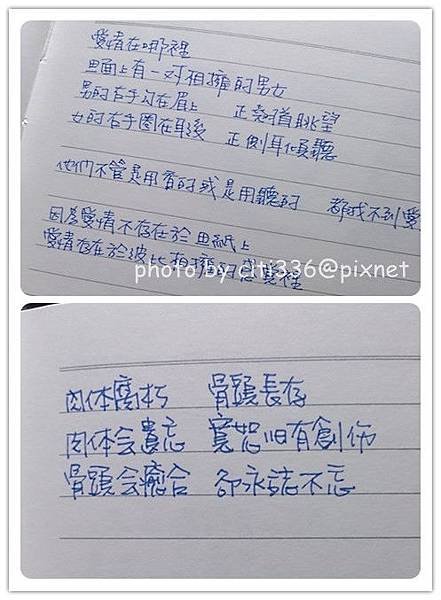 愛情在哪裡
画面上有一对相擁的男女
男的右手勾在眉上 正 眺望
女的右手圈在耳後 正側耳傾聽
他們不管是用看的或是用聽的 都找不到愛
因為愛情不存在於画紙上
愛情存在於彼此相擁的感覺裡
photo by citi336@pixnet
肉体腐朽 骨頭長存
肉体会遺忘 寬恕旧有創伤
骨頭会癒合 卻永誌不忘